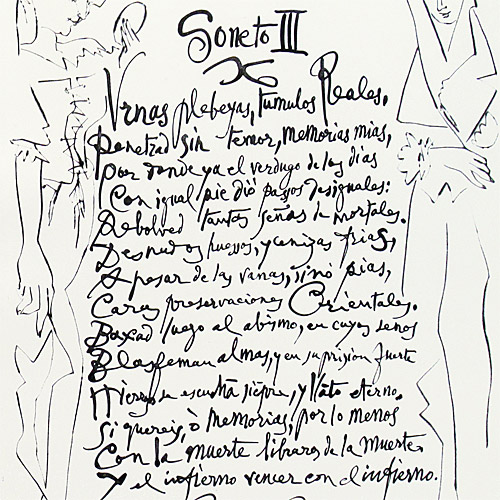 Soneto III
Vrnas plebeyas, tumulos Reales,
penetrad sin temor, memorias mias,
por donde ya el verdugo de los dias
Con igual pie diò passos desiguales:
Rebolved tantas señas de mortales.
Desnudos huessos, y cenizas frias,
A pesar de las vanas, sinò pias,
Caras preservaciones Orientales.
Baxad luego al abismo, en cuyos senos
Blasfeman almas, y en su prision fuerte
Hierros se escuchã siepre, y llãto eterno.
Si quereis, ò Memorias, por lo menos
Con la muerte libraros de la Muerte
Y el infierno vencer con el infierno.